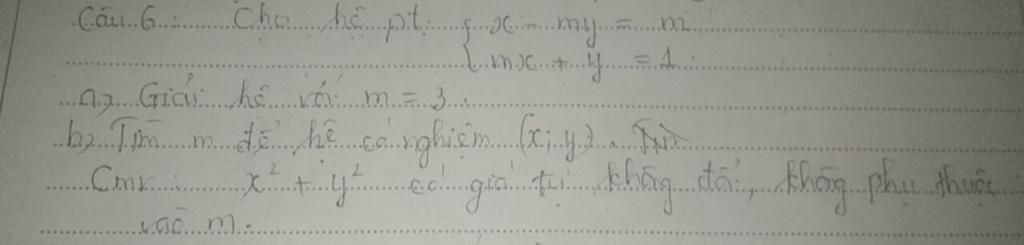 Câu 6: Cho hệ pt: { x - my = m
mx + y = 1
a, Giải hệ với m = 3.
b, Tìm m để hệ có nghiệm (x; y).
Cmr: x² + y² có giá trị không đổi, không phụ thuộc
vào m.